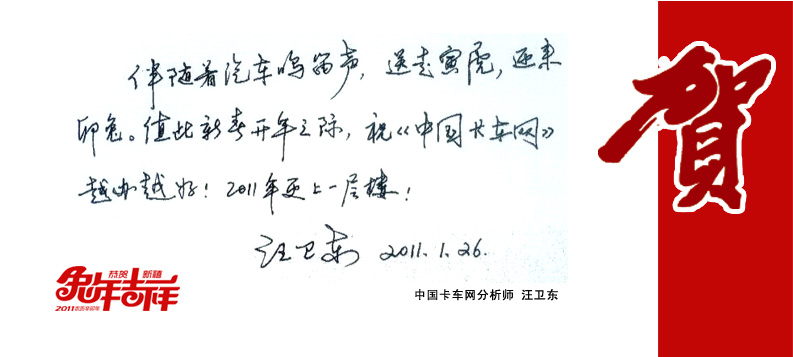 伴随着汽车鸣笛声，送走寅虎，迎来
卯兔。值此新春开年之际，祝《中国卡车网》
越办越好！2011年更上一层楼！
汪卫东 2011.1.26.
贺
恭贺 新禧
兔年吉祥
2011农历辛卯年
中国卡车网分析师 汪卫东